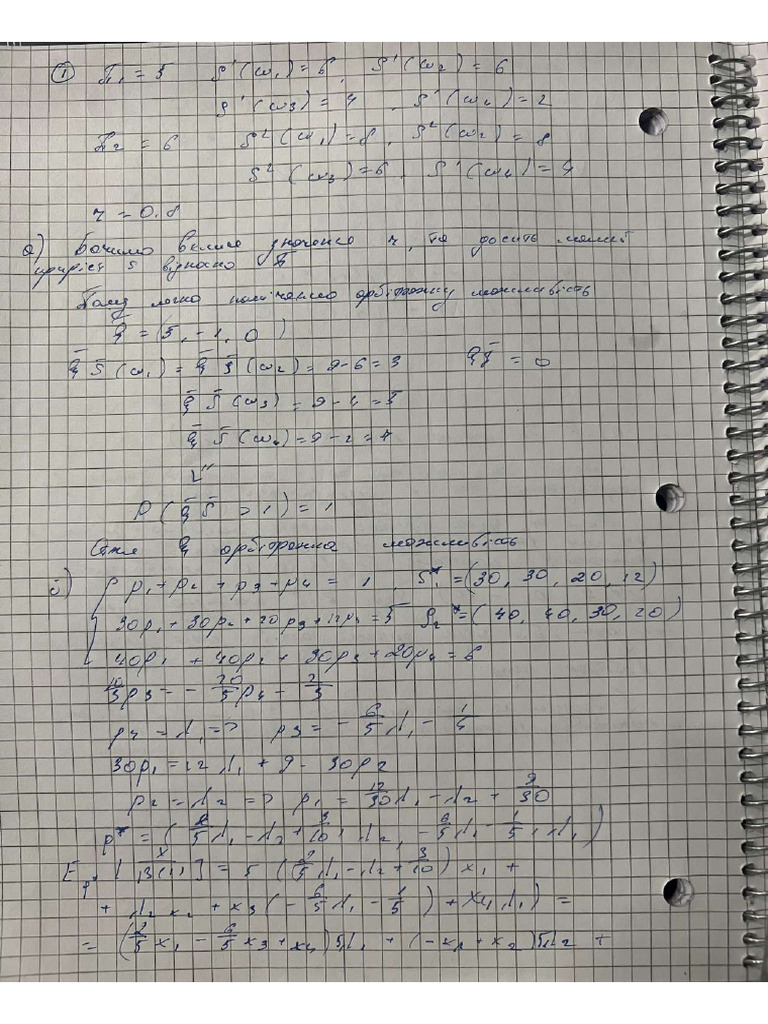 ① π₁ = 5 S¹(ω₁) = 6, S¹(ω₂) = 6
S¹(ω₃) = 4, S¹(ω₄) = 2
π₂ = 6 S²(ω₁) = 8, S²(ω₂) = 8
S²(ω₃) = 6, S¹(ω₄) = 4
r = 0.8
a) Бачимо велике значення r, та досить малий
приріст S відносно π
Тому легко помічаємо арбітражну можливість
ξ = (5, -1, 0)
ξ̄ S̄(ω₁) = ξ̄ S̄(ω₂) = 9 - 6 = 3
ξ̄ S̄(ω₃) = 9 - 4 = 5
ξ̄ S̄(ω₄) = 9 - 2 = 7
P(ξ̄ S̄ > 1) = 1
Отже ξ арбітражна можливість
p₁ + p₂ + p₃ + p₄ = 1, S₁* = (30, 30, 20, 12)
30p₁ + 30p₂ + 20p₃ + 12p₄ = 5 S₂* = (40, 40, 30, 20)
40p₁ + 40p₂ + 30p₃ + 20p₄ = 6
p₄ = λ₁ => p₃ = - 6/5 λ₁ - 1/4
30p₁ = 12λ₁ + 9 - 30p₂
p₂ = λ₂ => p₁ = 12/30 λ₁ - λ₂ + 9/30
p* = (2/5 λ₁ - λ₂ + 3/10, λ₂, - 6/5 λ₁ - 1/5, λ₁)
= 5 (2/5 λ₁ - λ₂ + 3/10) x₁ +
+ λ₂ x₂ + x₃ (- 6/5 λ₁ - 1/5) + x₄ λ₁) =
= (2/5 x₁ - 6/5 x₃ + x₄) 5λ₁ + (-x₁ + x₂) 5λ₂ +